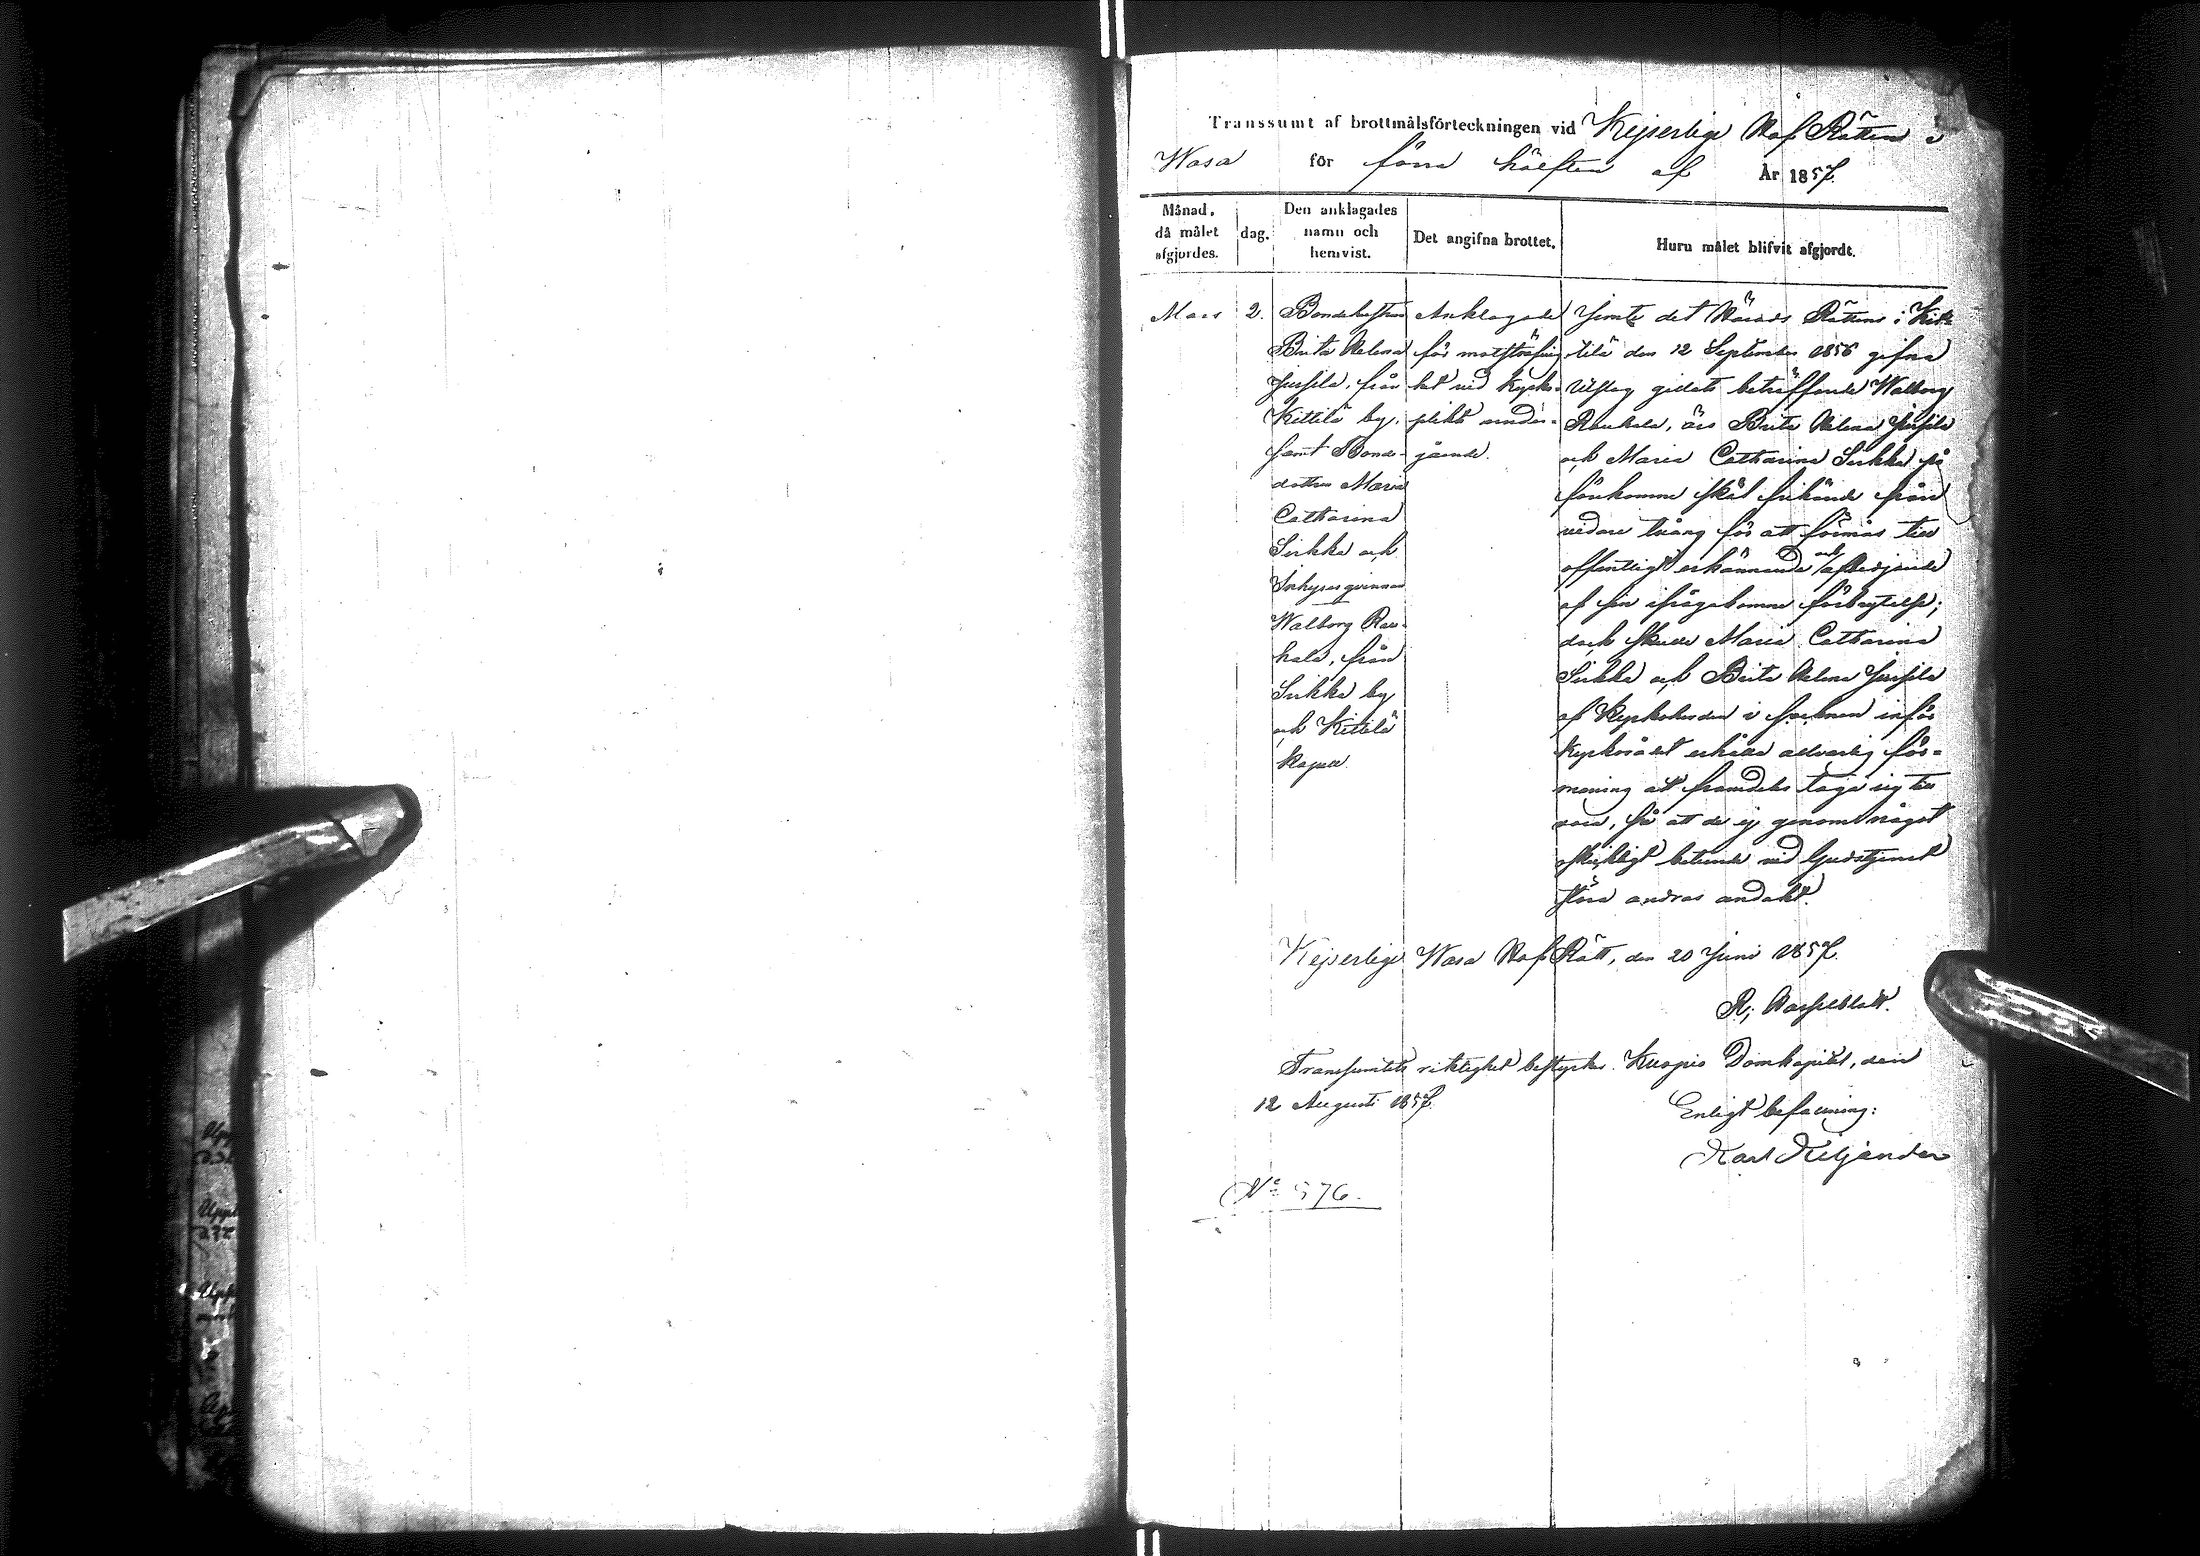 Transsumt af brottmålsförteckningen vid Kejserlige Hof Rätten i
Wasa för förra hälften af År 1857.
Månad, då målet afgjordes.
dag.
Den anklagades namn och hemvist.
Det angifna brottet.
Huru målet blifvit afgjordt.
Mars
2.
Bondehustrun
Brita Helena
från
Kittilä by,
samt Bonde-
dottren Maria
Catharina
Sirkka och
Inhysesqvinnan
Walborg Rau-
hala, från
Sirkka by
och Kittilä
kapell.
Anklagade
för motsträfvig-
het vid kyrko-
plikts under-
gående.
Jemte det Härads Rättens i Kit-
tilä den 12 September 1856 gifna
Utslag gillats beträffande Walborg
Rauhala, äro Brita Helena
och Maria Catharina Sirkka på
förekomne skäl frikände från
vidare tvång för att förmås till
offentligt erkännande och afbedjande
af sin ifrågakomne förbrytelse;
dock skulle Maria Catharina
Sirkka och Brita Helena
af Kyrkoherden i socknen inför
Kyrkorådet erhålla allvarlig för-
maning att framdeles taga sig till
vara, så att de ej genom något
oskickligt beteende vid Gudstjenst
störa andras andakt.
Kejserlige Wasa Hof Rätt, den 20 Juni 1857.
R; Hasselblatt.
Transumtets riktighet bestyrker. Kuopio Domkapitel, den
12 Augusti 1857.
Enligt befallning:
Karl Kiljander
No 576.